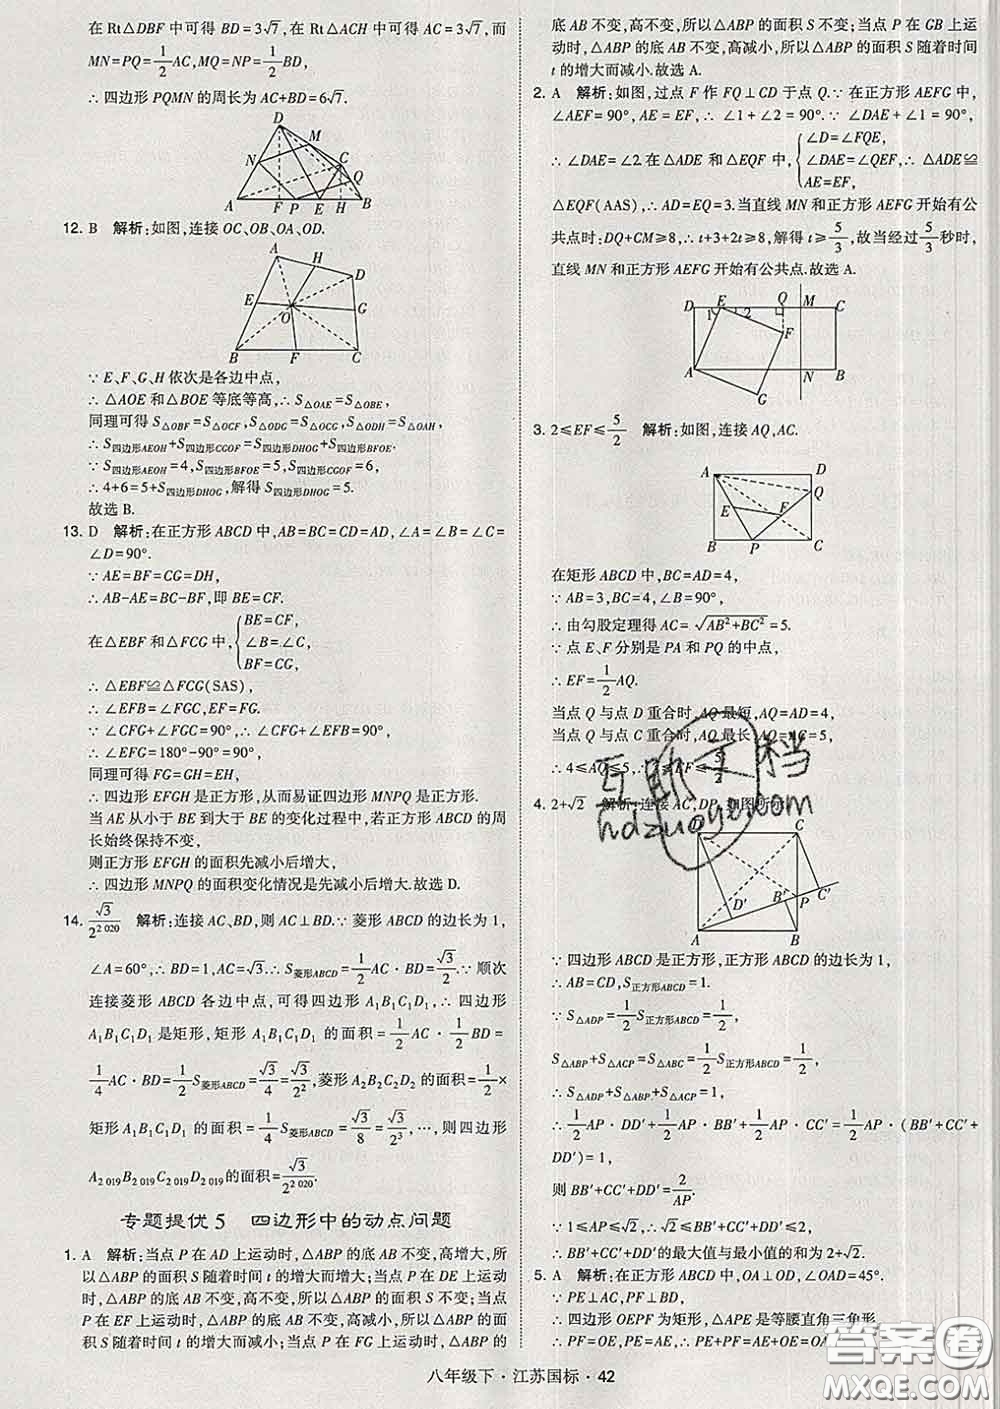 在 Rt△DBF 中可得 BD=3√7,在 Rt△ACH 中可得 AC=3√7,而
MN=PQ=1/2AC,MQ=NP=1/2BD,
∴ 四边形 PQMN 的周长为 AC+BD=6√7.
D
M
N
C
Q
A F P E H B
12. B 解析:如图,连接 OC、OB、OA、OD.
A
H
D
E
G
O
B F C
∵ E、F、G、H 依次是各边中点,
∴ △AOE 和△BOE 等底等高,∴ S△OAE=S△OBE,
同理可得 S△OBF=S△OCF,S△ODG=S△OCG,S△ODH=S△OAH,
∴ S四边形AEOH+S四边形CGOF=S四边形DHOG+S四边形BFOE.
∵ S四边形AEOH=4,S四边形BFOE=5,S四边形CGOF=6,
∴ 4+6=5+S四边形DHOG,解得 S四边形DHOG=5.
故选 B.
13. D 解析:在正方形 ABCD 中,AB=BC=CD=AD,∠A=∠B=∠C=
∠D=90°.
∵ AE=BF=CG=DH,
∴ AB-AE=BC-BF,即 BE=CF.
在△EBF 和△FCG 中,{BE=CF,
∠B=∠C,
BF=CG,
∴ △EBF≌△FCG(SAS),
∴ ∠EFB=∠FGC,EF=FG.
∵ ∠CFG+∠FGC=90°,∴ ∠CFG+∠EFB=90°,
∴ ∠EFG=180°-90°=90°,
同理可得 FG=GH=EH,
∴ 四边形 EFGH 是正方形,从而易证四边形 MNPQ 是正方形.
当 AE 从小于 BE 到大于 BE 的变化过程中,若正方形 ABCD 的周
长始终保持不变,
则正方形 EFGH 的面积先减小后增大,
∴ 四边形 MNPQ 的面积变化情况是先减小后增大.故选 D.
14. √3/2^2 020 解析:连接 AC、BD,则 AC⊥BD.∵ 菱形 ABCD 的边长为 1,
∠A=60°,∴ BD=1,AC=√3.∴ S菱形ABCD=1/2AC·BD=√3/2.∵ 顺次
连接菱形 ABCD 各边中点,可得四边形 A1B1C1D1,∴ 四边形
A1B1C1D1 是矩形,矩形 A1B1C1D1 的面积=1/2AC·1/2BD=
1/4AC·BD=1/2S菱形ABCD=√3/4=√3/2^2,菱形 A2B2C2D2 的面积=1/2×
矩形 A1B1C1D1 的面积=1/4S菱形ABCD=√3/8=√3/2^3,…,则四边形
A2 019B2 019C2 019D2 019的面积=√3/2^2 020.
专题提优 5 四边形中的动点问题
1. A 解析:当点 P 在 AD 上运动时,△ABP 的底 AB 不变,高增大,所
以△ABP 的面积 S 随着时间 t 的增大而增大;当点 P 在 DE 上运动
时,△ABP 的底 AB 不变,高不变,所以△ABP 的面积 S 不变;当点
P 在 EF 上运动时,△ABP 的底 AB 不变,高减小,所以△ABP 的面
积 S 随着时间 t 的增大而减小;当点 P 在 FG 上运动时,△ABP 的
底 AB 不变,高不变,所以△ABP 的面积 S 不变;当点 P 在 GB 上运
动时,△ABP 的底 AB 不变,高减小,所以△ABP 的面积 S 随着时间
t 的增大而减小.故选 A.
2. A 解析:如图,过点 F 作 FQ⊥CD 于点 Q.∵ 在正方形 AEFG 中,
∠AEF=90°,AE=EF,∴ ∠1+∠2=90°.∵ ∠DAE+∠1=90°,
∴ ∠DAE=∠2.在△ADE 和△EQF 中,{∠D=∠FQE,
∠DAE=∠QEF,
AE=EF,
∴ △ADE≌
△EQF(AAS),∴ AD=EQ=3.当直线 MN 和正方形 AEFG 开始有公
共点时:DQ+CM≥8,∴ t+3+2t≥8,解得 t≥5/3,故当经过5/3秒时,
直线 MN 和正方形 AEFG 开始有公共点.故选 A.
D E Q M C
1 2
F
A N B
G
3. 2≤EF≤5/2 解析:如图,连接 AQ、AC.
A D
Q
E F
B P C
在矩形 ABCD 中,BC=AD=4,
∵ AB=3,BC=4,∠B=90°,
∴ 由勾股定理得 AC=√AB²+BC²=5.
∵ 点 E、F 分别是 PA 和 PQ 的中点,
∴ EF=1/2AQ.
当点 Q 与点 D 重合时,AQ 最短,AQ=AD=4,
当点 Q 与点 C 重合时,AQ 最长,AQ=AC=5,
∴ 4≤AQ≤5,∴ 2≤EF≤5/2.
4. 2+√2 解析:连接 AC、DP,如图所示.
C
D′ B′ P C′
A B
∵ 四边形 ABCD 是正方形,正方形 ABCD 的边长为 1,
∴ AB=CD,S正方形ABCD=1.
∵ S△ADP=1/2S正方形ABCD=1/2,
S△ABP+S△ACP=S△ABC=1/2S正方形ABCD=1/2,
∴ S△ADP+S△ABP+S△ACP=1,
∴ 1/2AP·DD′+1/2AP·BB′+1/2AP·CC′=1/2AP·(BB′+CC′+
DD′)=1,
则 BB′+CC′+DD′=2/AP.
∵ 1≤AP≤√2,∴ √2≤BB′+CC′+DD′≤2,
∴ BB′+CC′+DD′的最大值与最小值的和为 2+√2.
5. A 解析:在正方形 ABCD 中,OA⊥OD,∠OAD=45°.
∵ PE⊥AC,PF⊥BD,
∴ 四边形 OEPF 为矩形,△APE 是等腰直角三角形,
∴ PF=OE,PE=AE,∴ PE+PF=AE+OE=OA.
八年级下·江苏国标·42
互助文档
hdzuoye.com
答案圈
MXQE.COM